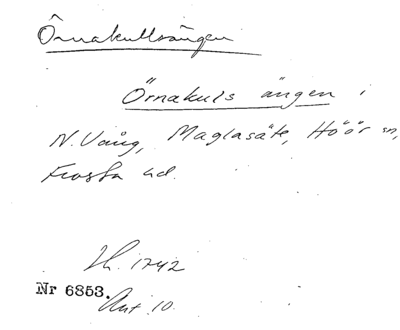 Örnakullsängen
Örnakuls ängen i
N. Vång, Maglasäte, Höör sn,
Frosta hd.
Lh. 1742
Nr 6853.
Akt 10.